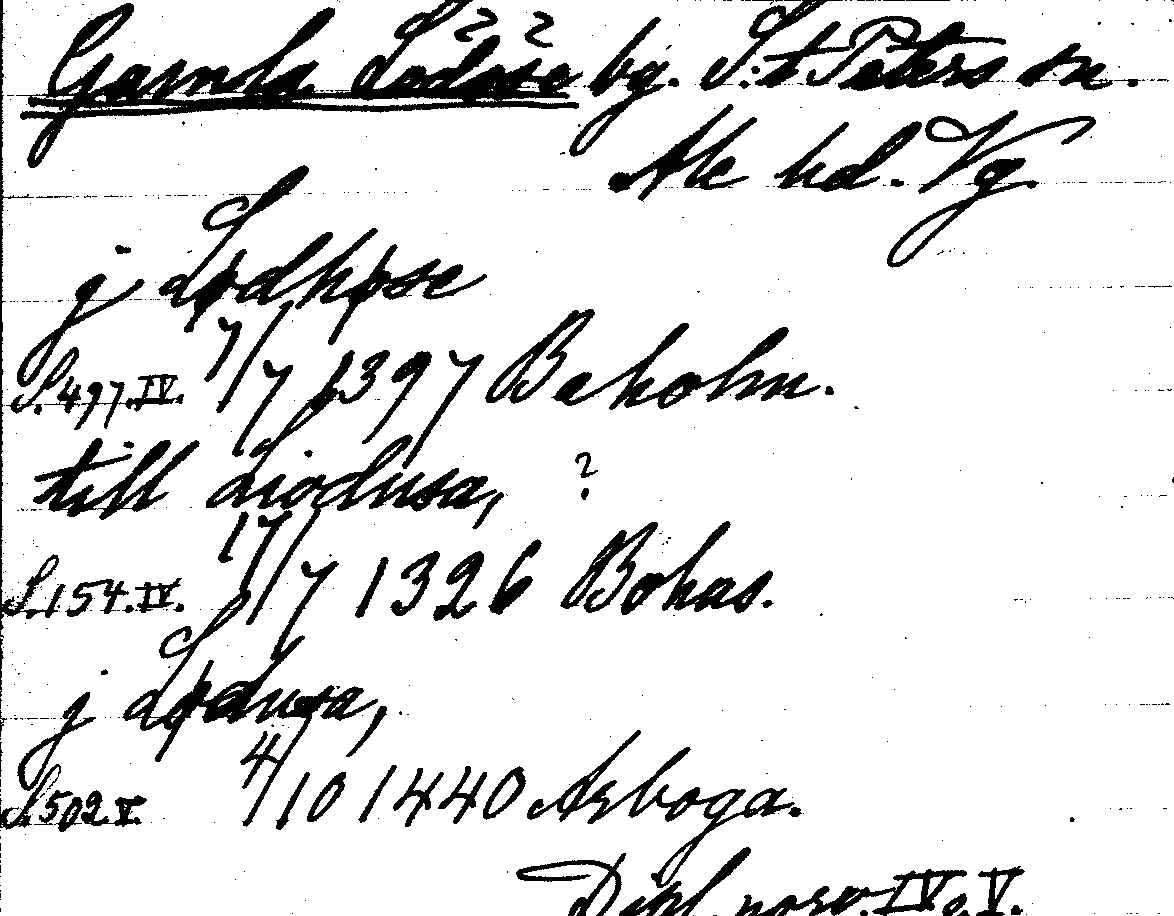 Gamla Lödöse bg. S:t Peters sn.
Ale hd. Vg.
j Lødhøse
S. 497. IV. 7/7 1397 Baholm.
till Liodusa, ?
S. 154. IV. 17/7 1326 Bohas.
j Lødusa,
S. 502 V. 4/10 1440 Arboga.
Dipl. norv. IV o. V.